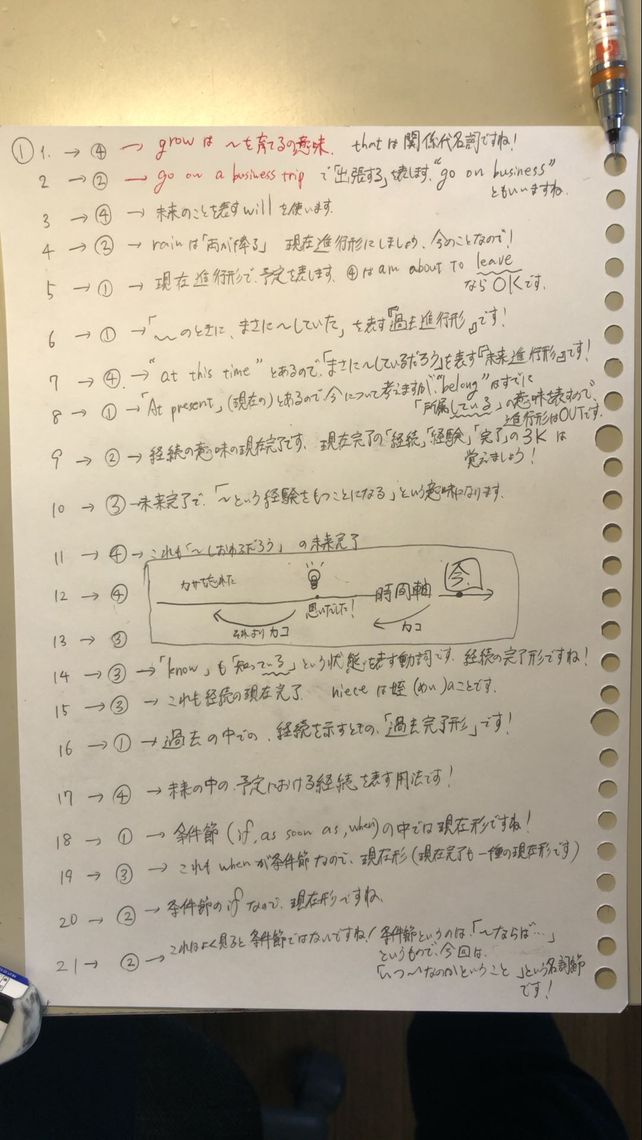 ① 1. → ④ → growは〜を育てるの意味. thatは関係代名詞ですね!
2 → ② → go on a business tripで「出張する」を表します. "go on business"
ともいいますね.
3 → ④ → 未来のことを表すwillを使います.
4 → ② → rainは「雨が降る」 現在進行形にしましょう、今のことなので!
5 → ① → 現在進行形で、予定を表します. ④はam about to leave
ならOKです.
6 → ① → 「〜のときに、まさに〜していた」を表す『過去進行形』です!
7 → ④. → "at this time"とあるので、「まさに〜しているだろう」を表す『未来進行形』です!
8 → ① → 「At present」(現在の)とあるので今について考えますが"belong"はすでに
「所属している」の意味を表すので、
進行形はOUTです.
9 → ② → 継続の意味の現在完了です. 現在完了の「継続」「経験」「完了」の3Kは
覚えましょう!
10 → ③ → 未来完了で、「〜という経験をもつことになる」という意味になります.
11 → ④ → これも「〜しおわるだろう」の未来完了
カサを忘れた
今.
12 → ④
時間軸
思いだした!
それよりカコ
カコ
13 → ③
14 → ③ → 「know」も「知っている」という状態を表す動詞です. 継続の完了形ですね!
15 → ③ → これも継続の現在完了. nieceは姪(めい)のことです.
16 → ① → 過去の中での、継続を示すときの、「過去完了形」です!
17 → ④ → 未来の中の、予定における継続を表す用法です!
18 → ① → 条件節(if, as soon as, when)の中では現在形ですね!
19 → ③ → これもwhenが条件節なので、現在形(現在完了も一種の現在形です)
20 → ② → 条件節のifなので、現在形ですね.
21 → ② → これはよく見ると条件節ではないですね! 条件節というのは、「〜ならば…」
というもので、今回は、
「いつ〜なのかということ」という名詞節
です!